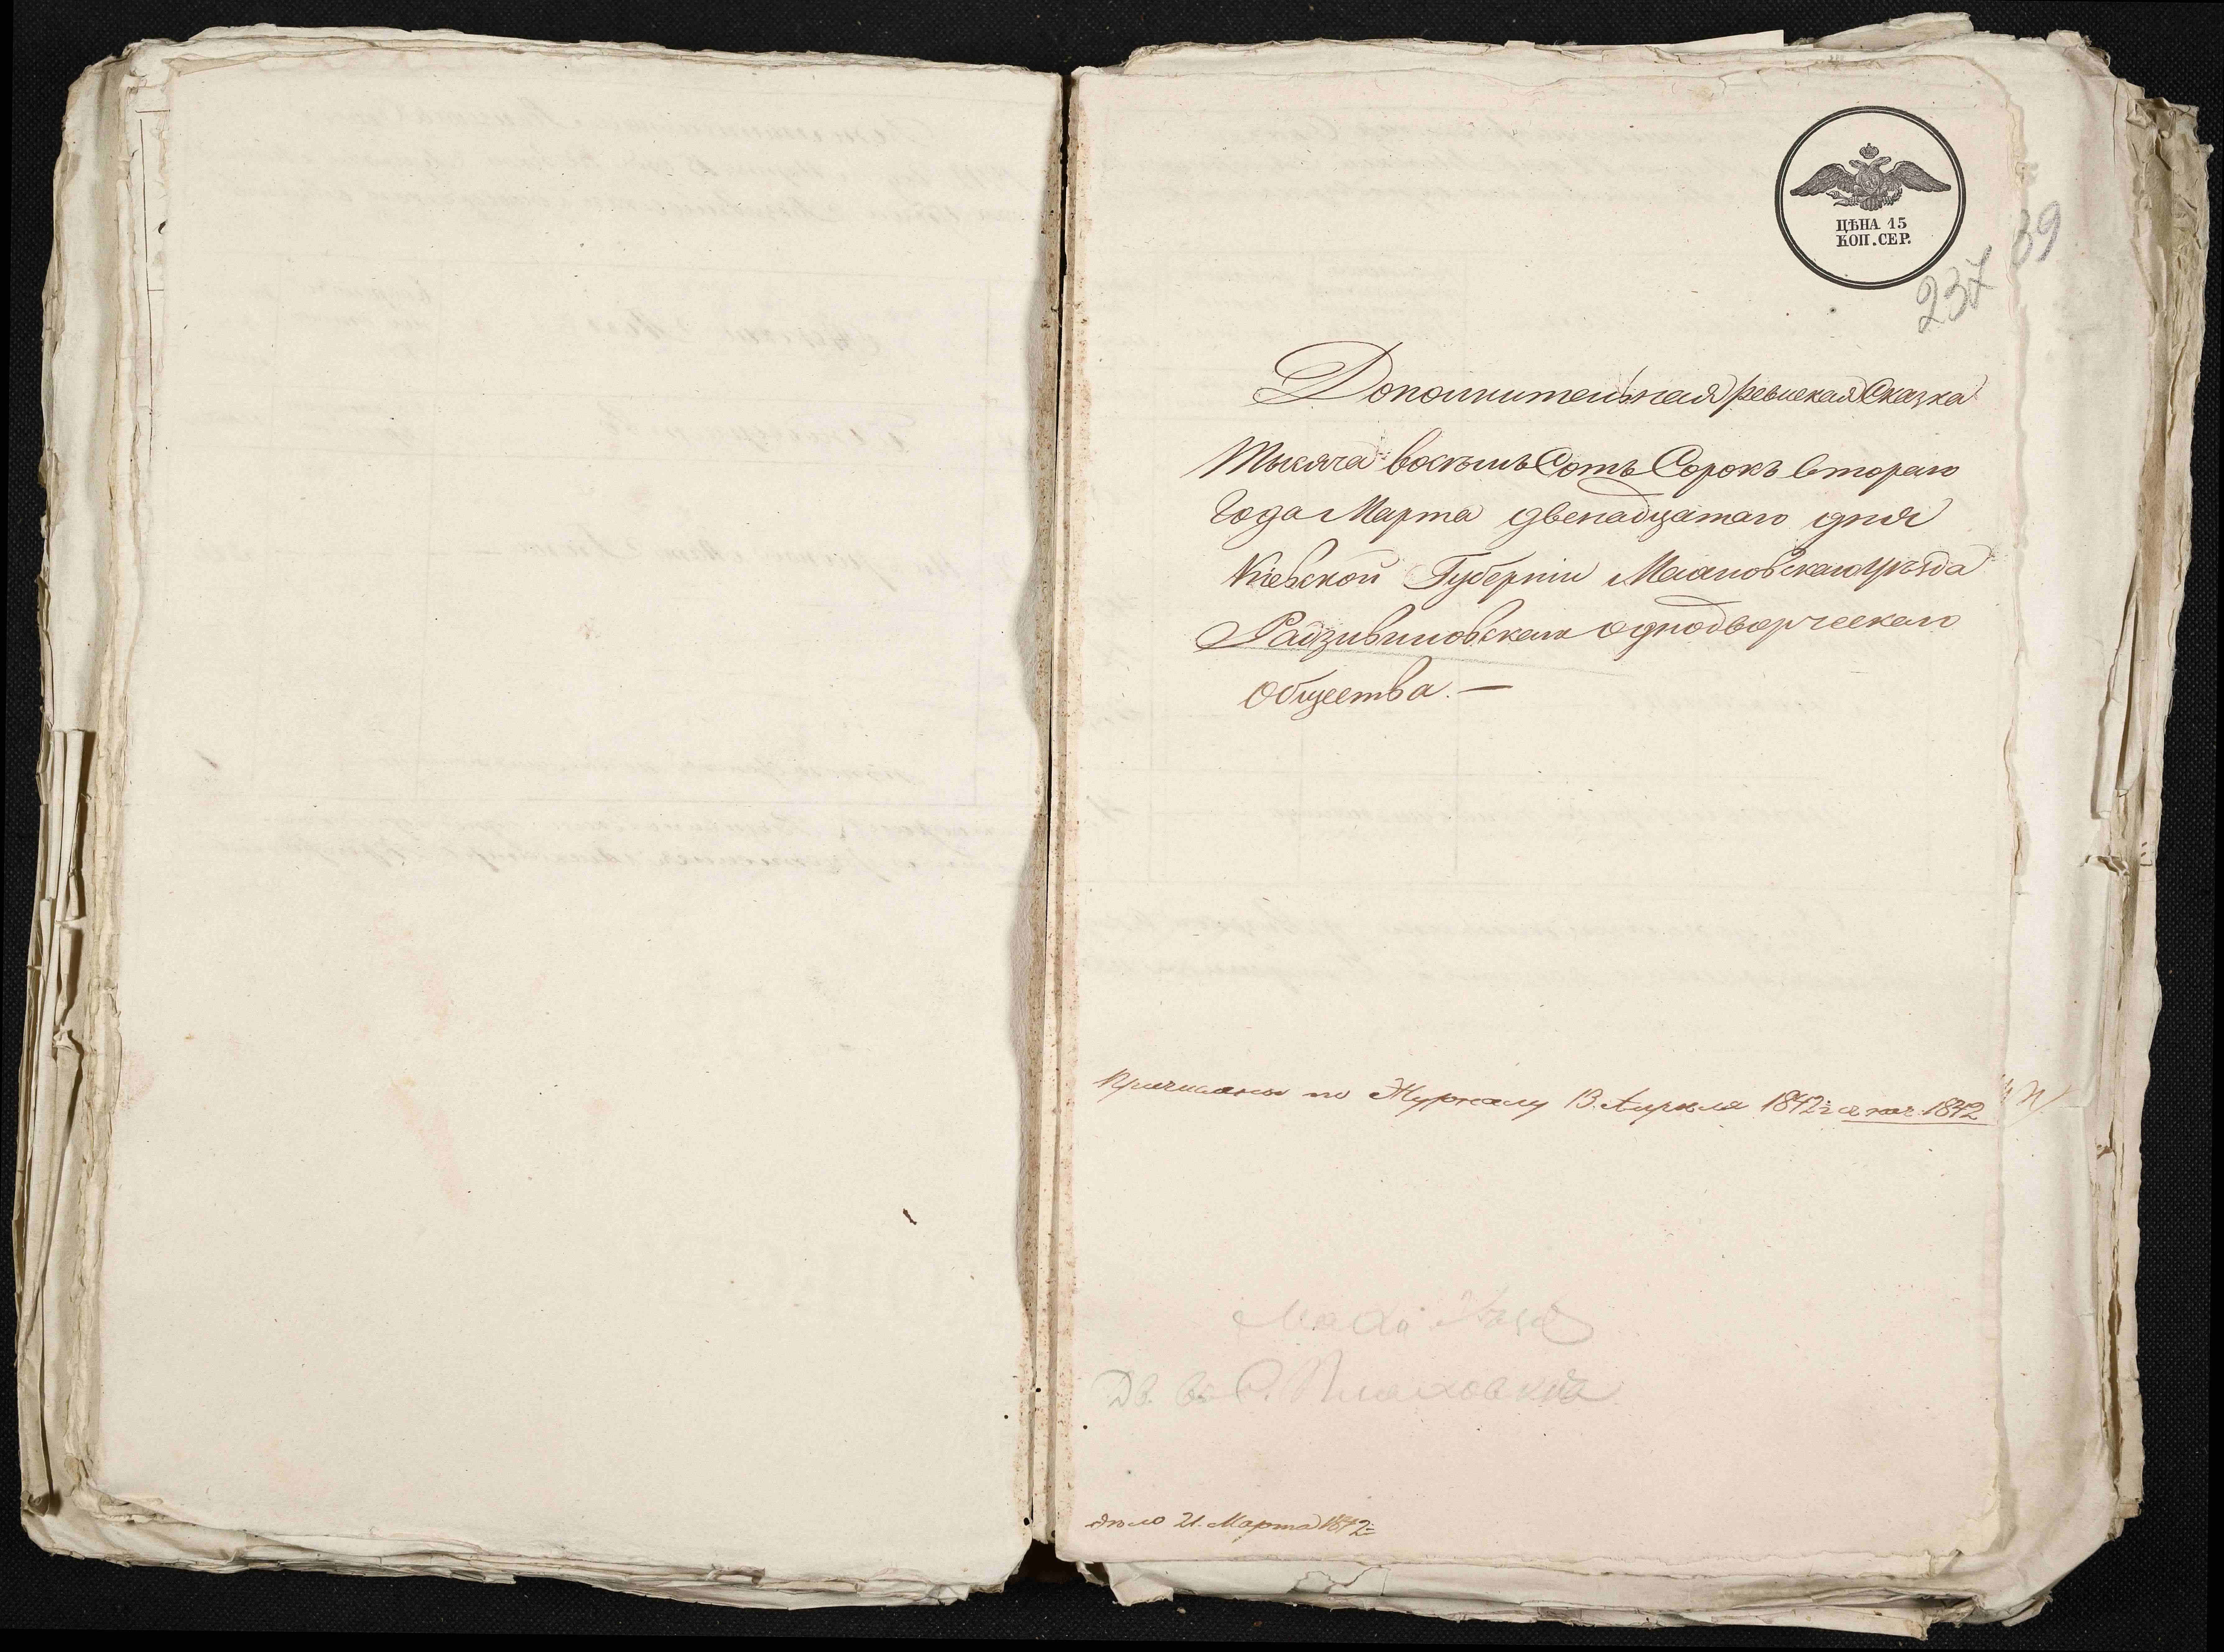 ЦѢНА 15
КОП. СЕР.
39
237
Дополнительная ревиская Сказка
Тысяча восемь Сотъ Сорокъ втораго
Года Марта двенадцатаго дня
Кіевской Губерніи Махновскаго уѣзда
Радзивиловскаго однодворческаго
Общества. —
Причислены по Журналу 13 Апреля 1842 г. съ 1842
Дв. въ С.
дѣло 21 Марта 1842